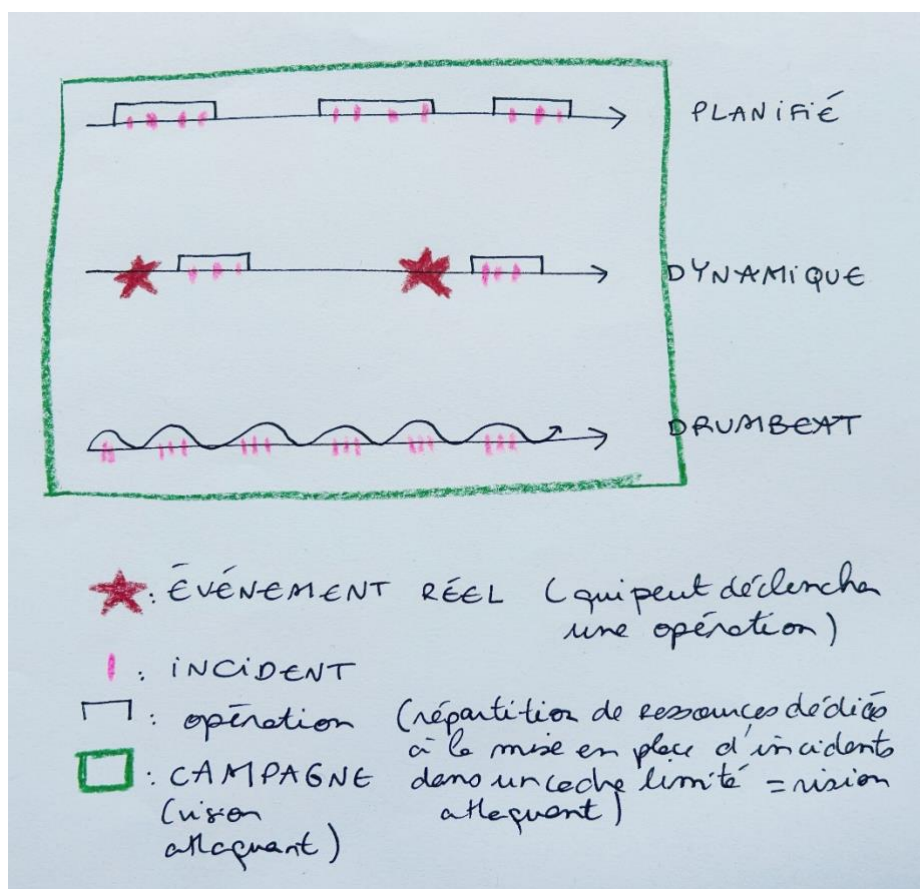 PLANIFIÉ
DYNAMIQUE
DRUMBEAT
: ÉVÉNEMENT RÉEL (qui peut déclencher
une opération)
: INCIDENT
: opération (répartition de ressources dédiées
à la mise en place d'incidents
: CAMPAGNE dans un cadre limité = vision
(vision attaquant)
attaquant)